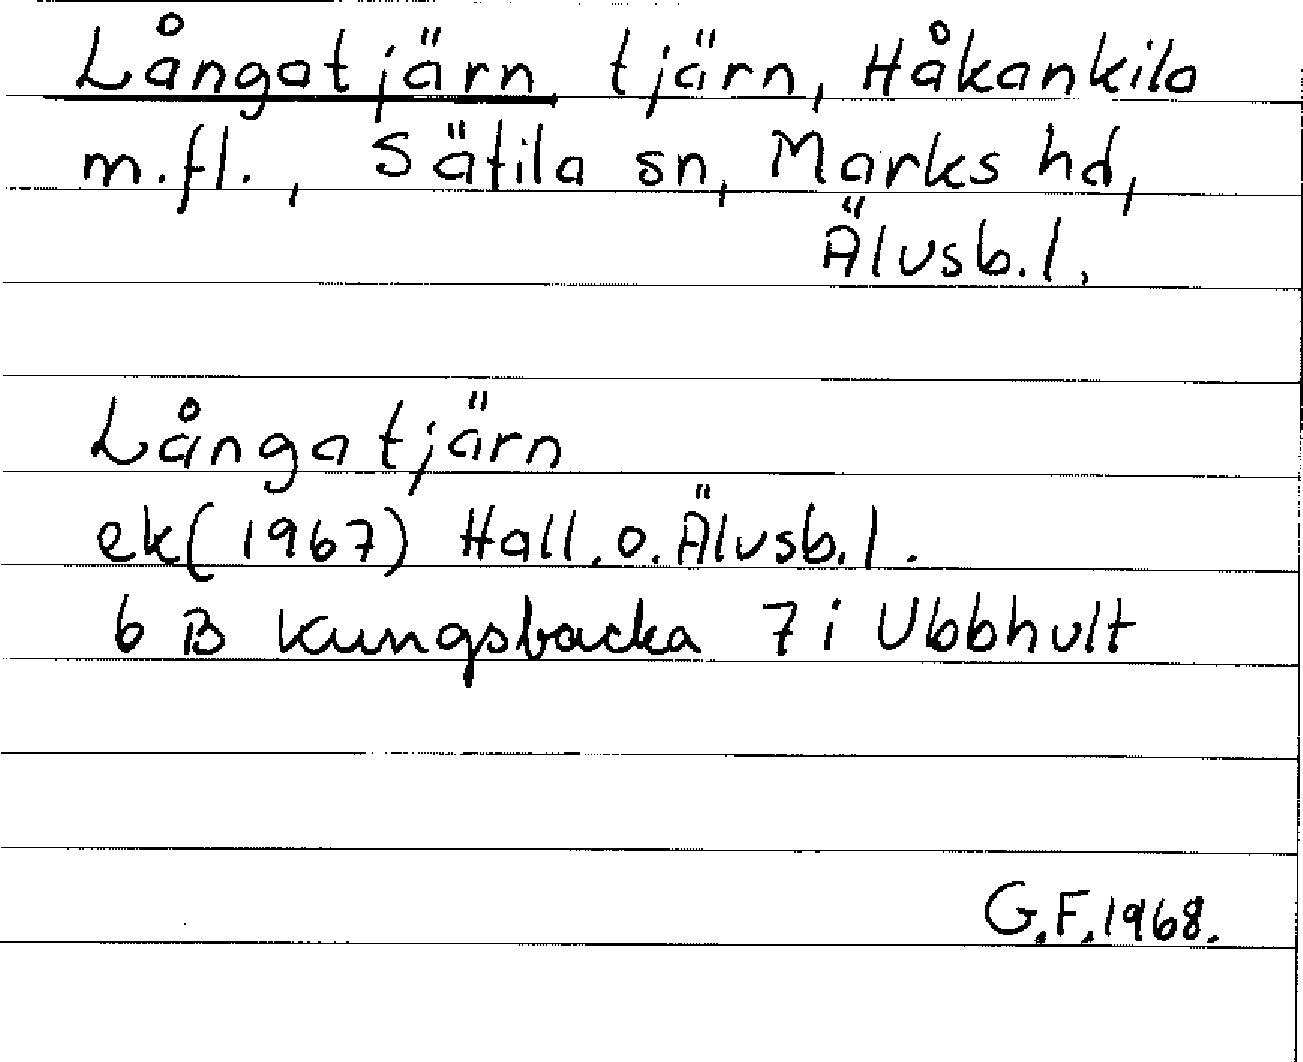 Långatjärn tjärn, Håkankila
m.fl., Sätila sn, Marks hd,
Älvsb.l.
Långatjärn
ek(1967) Hall.o.Älvsb.l.
6 B Kungsbacka 7 i Ubbhult
G.F.1968.